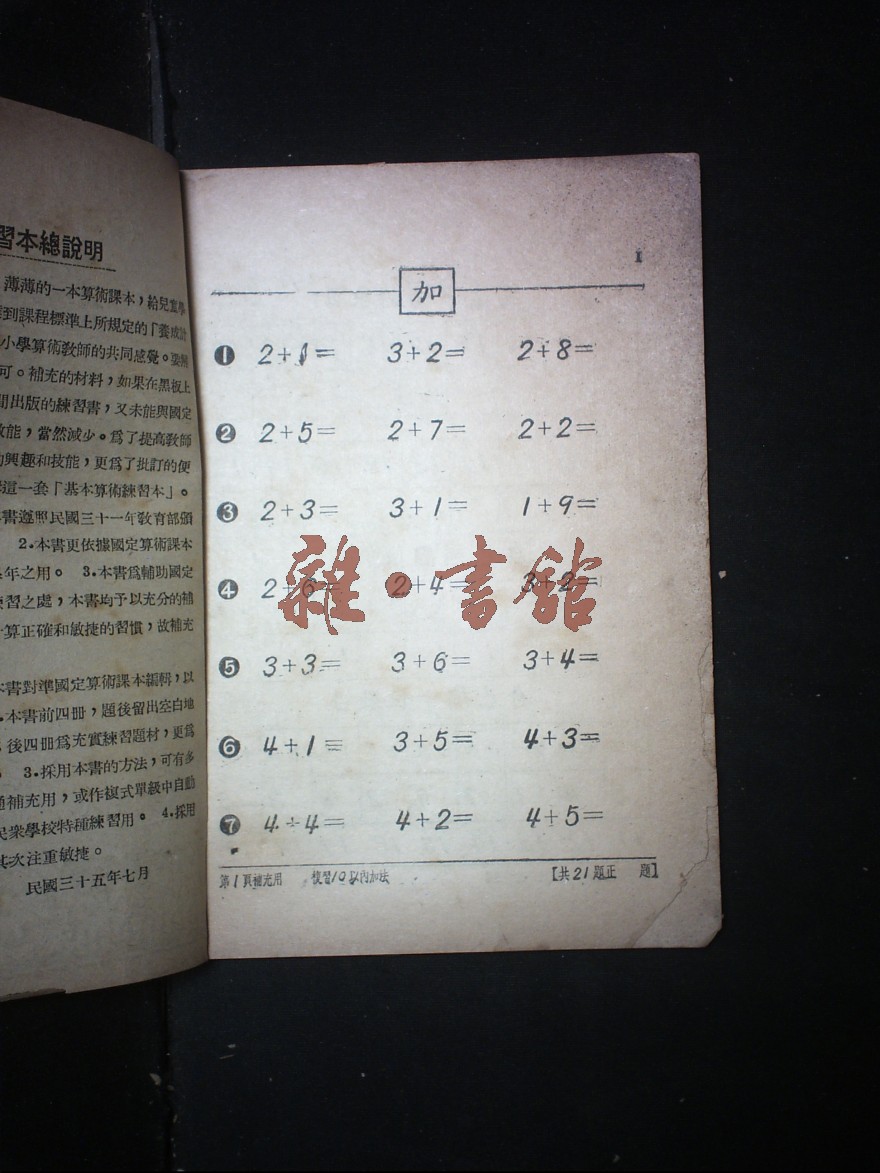 習本總說明
薄薄的一本算術課本，給兒童學
到課程標準上所規定的「養成計
小學算術教師的共同感覺。
可。補充的材料，如果在黑板上
間出版的練習書，又未能與國定
效能，當然減少。爲了提高教師
的興趣和技能，更爲了批訂的便
這一套「基本算術練習本」。
本書遵照民國三十一年教育部頒
2.本書更依據國定算術課本
年之用。 3.本書爲輔助國定
練習之處，本書均予以充分的補
計算正確和敏捷的習慣，故補充
本書對準國定算術課本編輯，以
本書前四冊，題後留出空白地
後四冊爲充實練習題材，更爲
3.採用本書的方法，可有多
通補充用，或作複式單級中自動
民衆學校特種練習用。 4.採用
其次注重敏捷。
民國三十五年七月
1
加
❶ 2+1= 3+2= 2+8=
❷ 2+5= 2+7= 2+2=
❸ 2+3= 3+1= 1+9=
❹ 2+6= 2+4= 3+2=
雜·書館
❺ 3+3= 3+6= 3+4=
❻ 4+1= 3+5= 4+3=
❼ 4+4= 4+2= 4+5=
第1頁補充用 複習10以內加法 [共21題正 題]